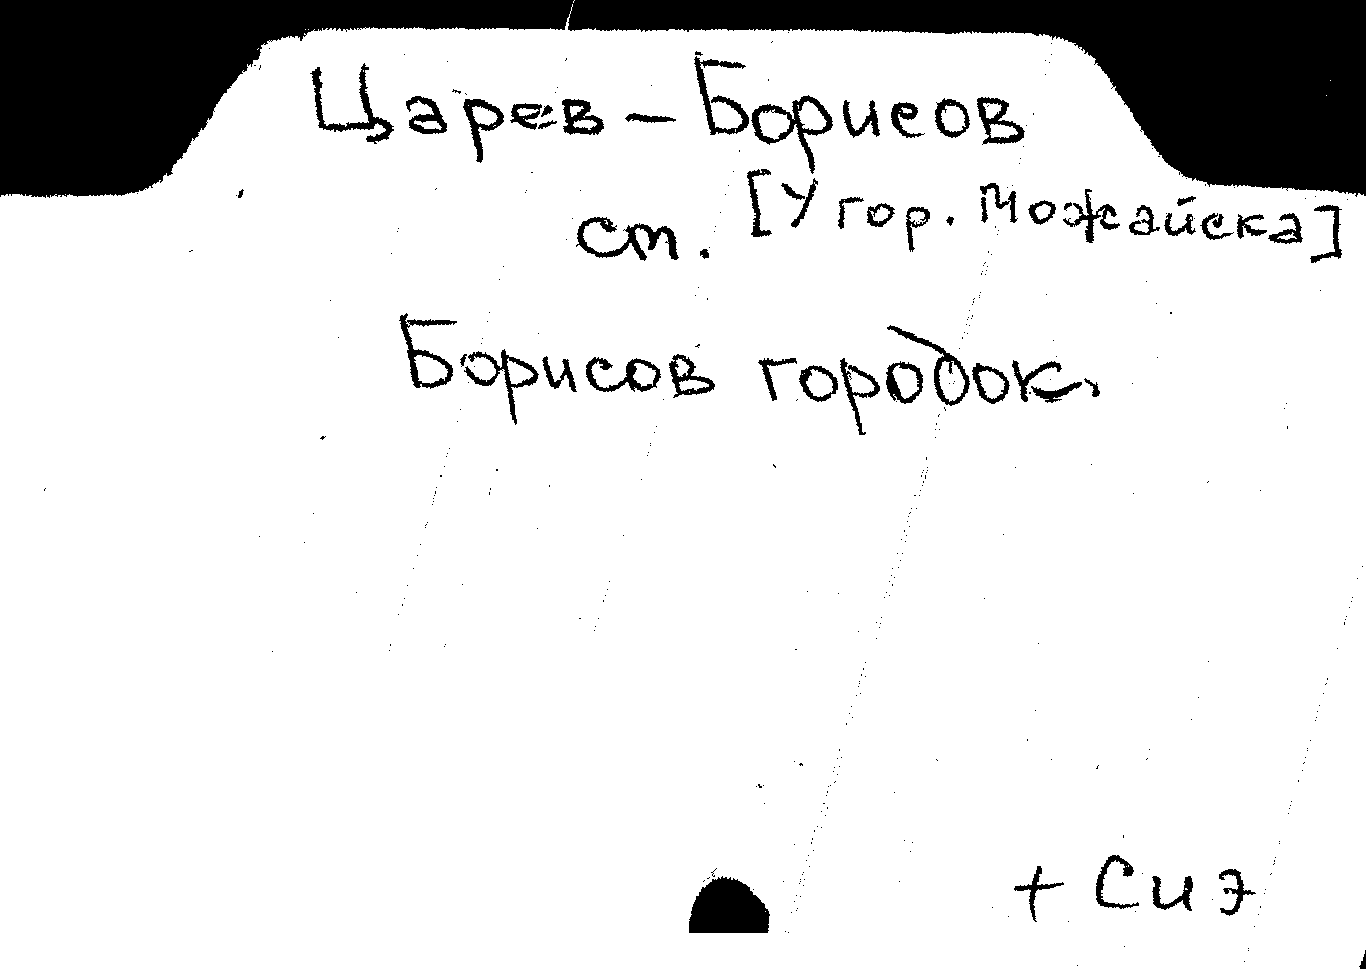 Царев – Борисов
ст. [У гор. Можайска]
Борисов городок.
+ Сиэ